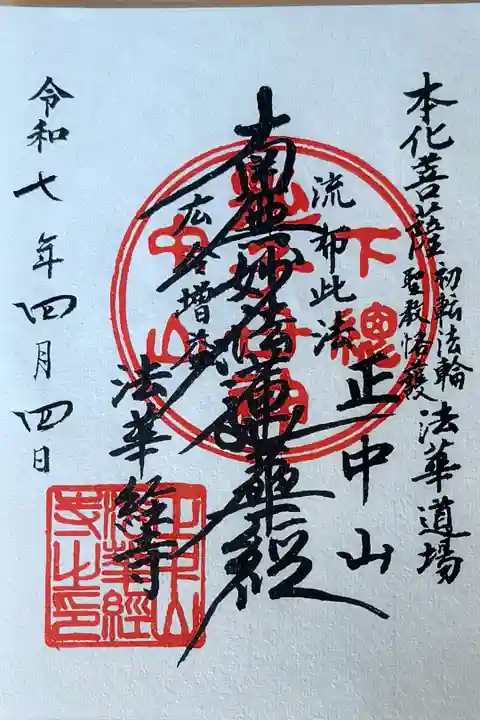 本化菩薩初転法輪聖教恪護法華道場
正中山
流布此法
南無妙法蓮華経
広令増益
法華経寺
令和七年四月四日
下總
中山